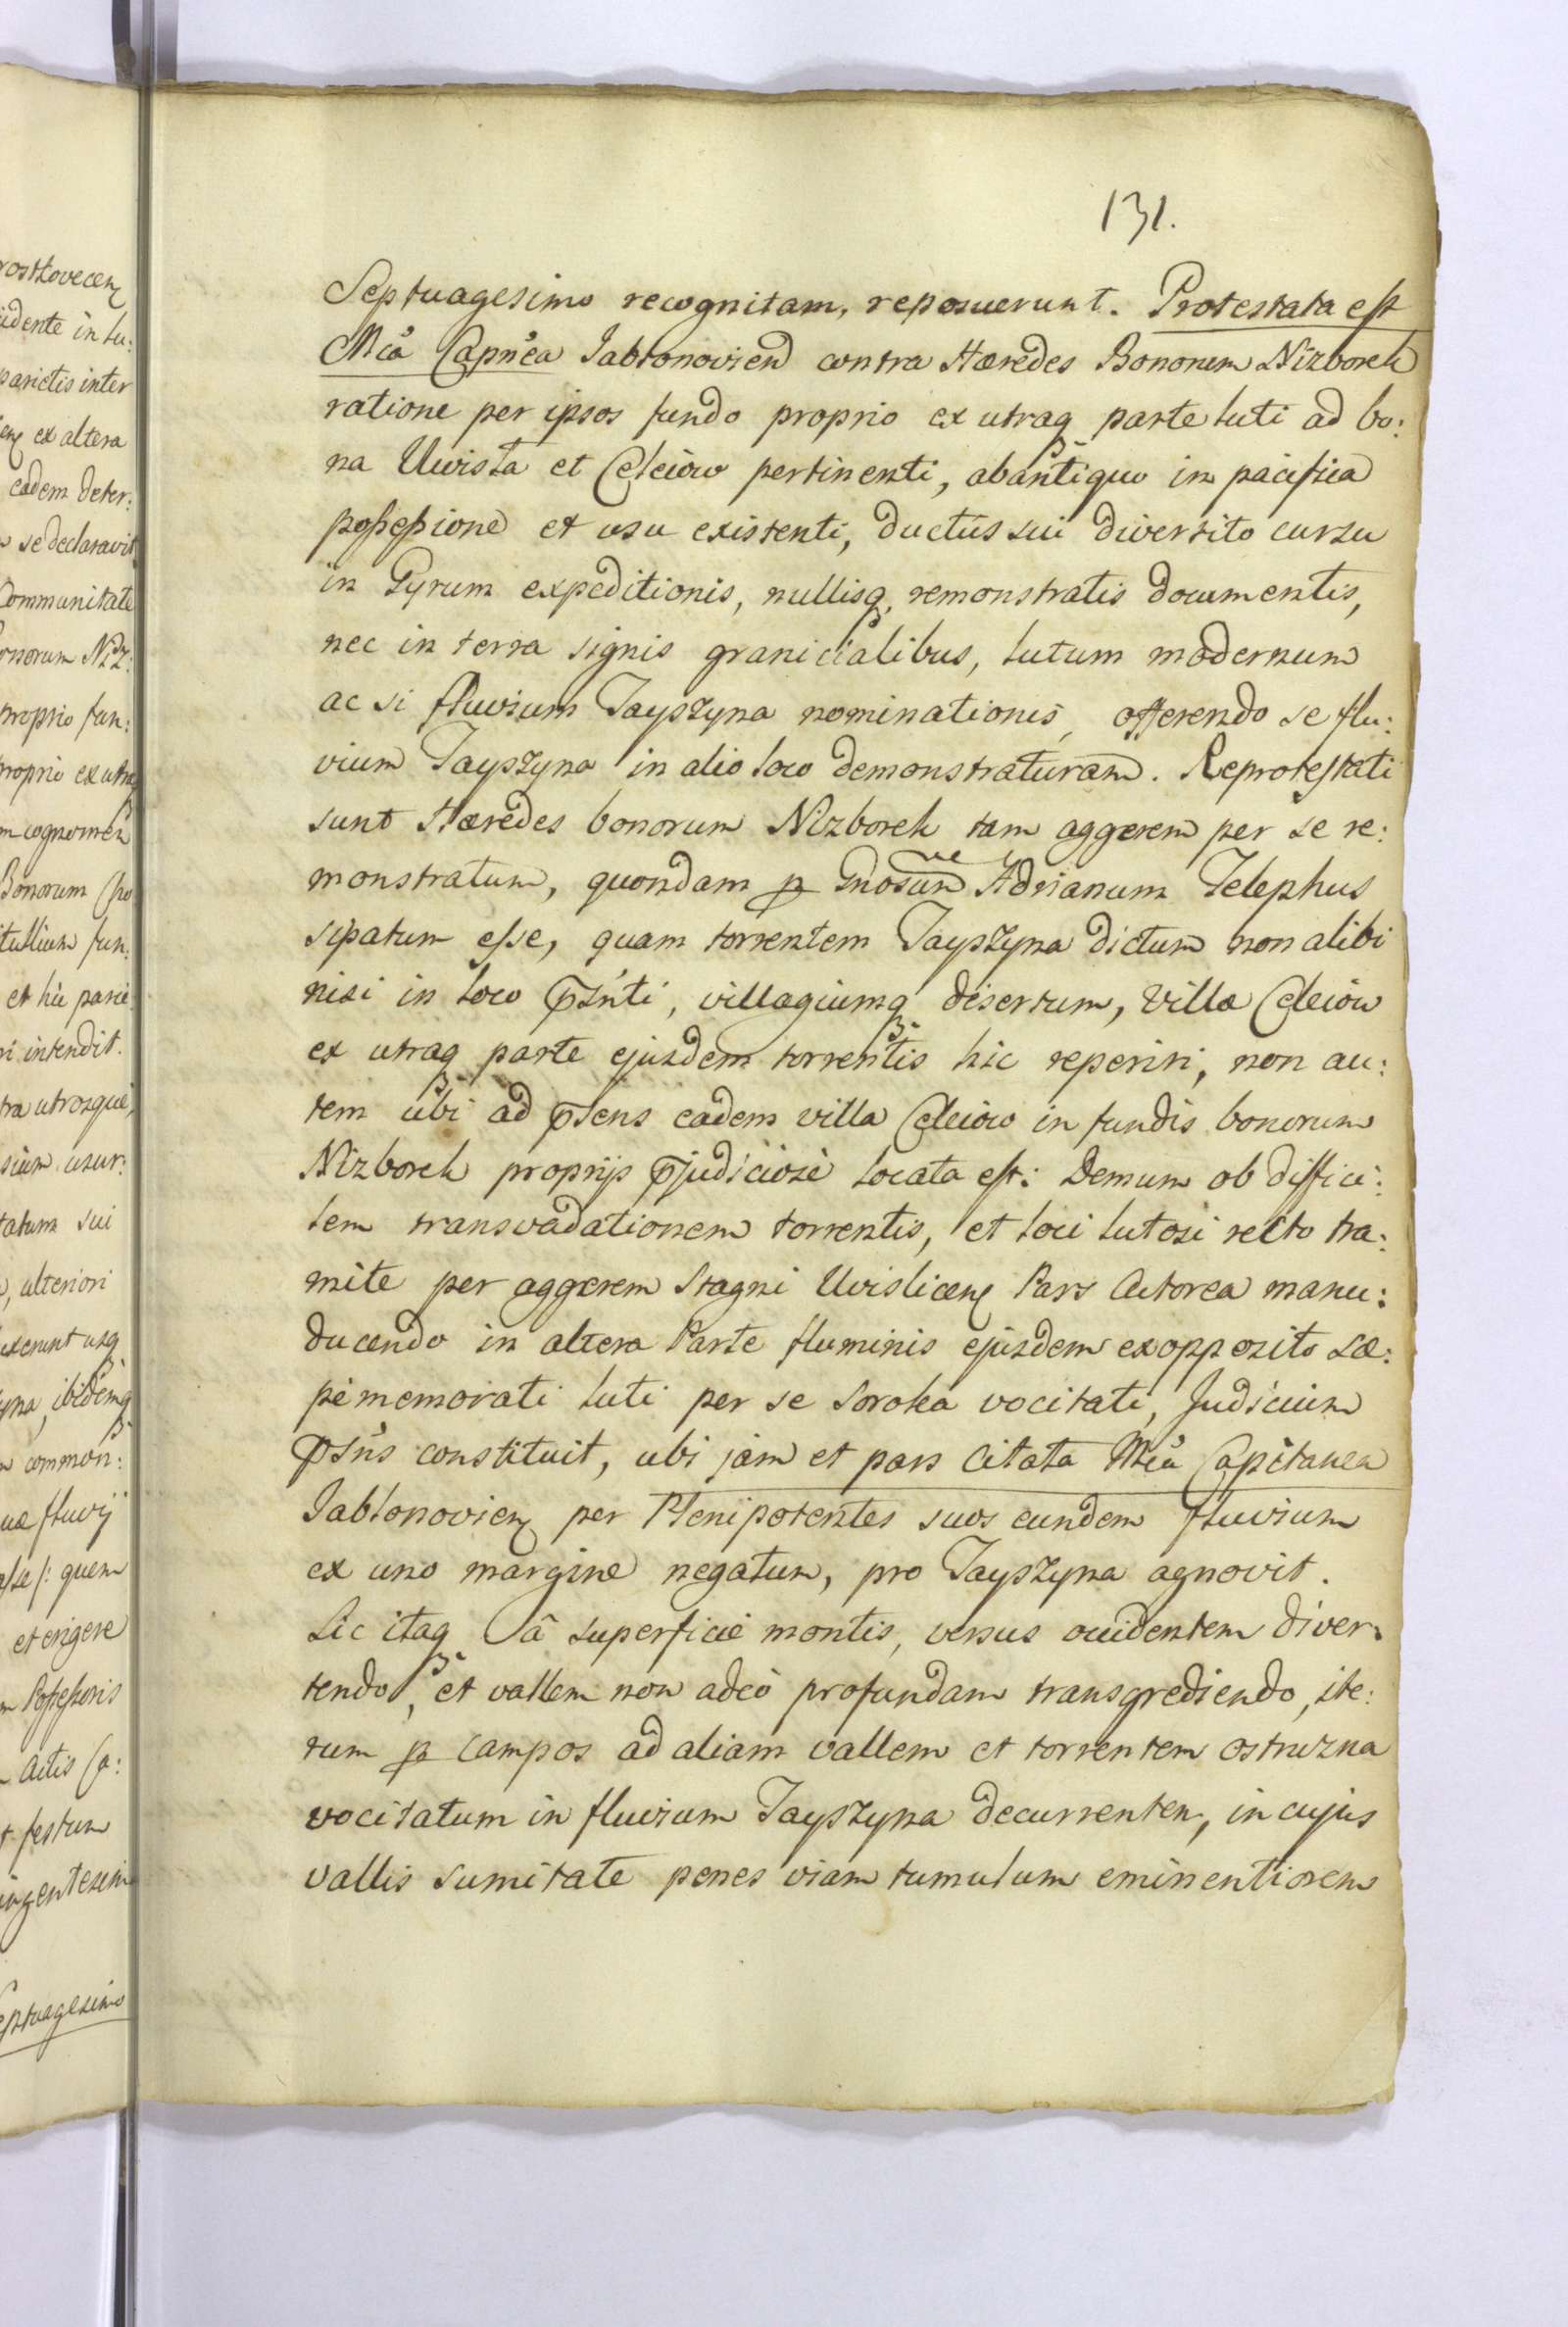 131.
Septuagesimo recognitam, reposuerunt. Protestata est
Mcâ Capn̄ea Jabłonovien contra Hæredes Bonorum Nizborek
ratione per ipsos fundo proprio ex utraqꝫ parte luti ad bo:
na Uwisła et Celeiow pertinenti, abantiquo in pacifica
possessione et usu existenti, ductûs sui diversito cursu
in Gyrum expeditionis, nullisqꝫ remonstratis documentis,
nec in terra signis granicialibus, lutum modernum
ac si fluvium Tayszyna nominationis, offerendo se flu:
vium Tayszyna in alio loco demonstraturam. Reprotestati
sunt Hæredes bonorum Nizborek tam aggerem per se re:
monstratum, quondam ꝑ Gnosum Adrianum Telephus
sipatum esse, quam torrentem Tayszyna dictum non alibi
nisi in loco p̄sn̄ti, villagiumqꝫ desertum, Villæ Celeiow
ex utraqꝫ parte ejusdem torrentis hic reperiri, non au:
tem ubi ad p̄sens eadem villa Celeiow in fundis bonorum
Nizborek proprijs p̄judiciosè locata est: Demum ob diffici:
lem transvadationem torrentis, et loci lutosi recto tra:
mite per aggerem Stagni Uvislicen Pars Actorea manu:
ducendo in altera Parte fluminis ejusdem exopposito sæ:
pèmemorati luti per se Soroka vocitati, Judicium
p̄sn̄s constituit, ubi jam et pars Citata Mcâ Capitanea
Jablonovien per Plenipotentes suos eundem fluvium
ex uno margine negatum, pro Tayszyna agnovit.
Sic itaqꝫ â superficie montis, versus occidentem diver:
tendo, et vallem non adeò profundam transgrediendo, ite:
rum ꝑ campos ad aliam vallem et torrentem Ostruzna
vocitatum in fluvium Tayszyna decurrentem, in cujus
vallis sumitate penes viam tumulum eminentiorem